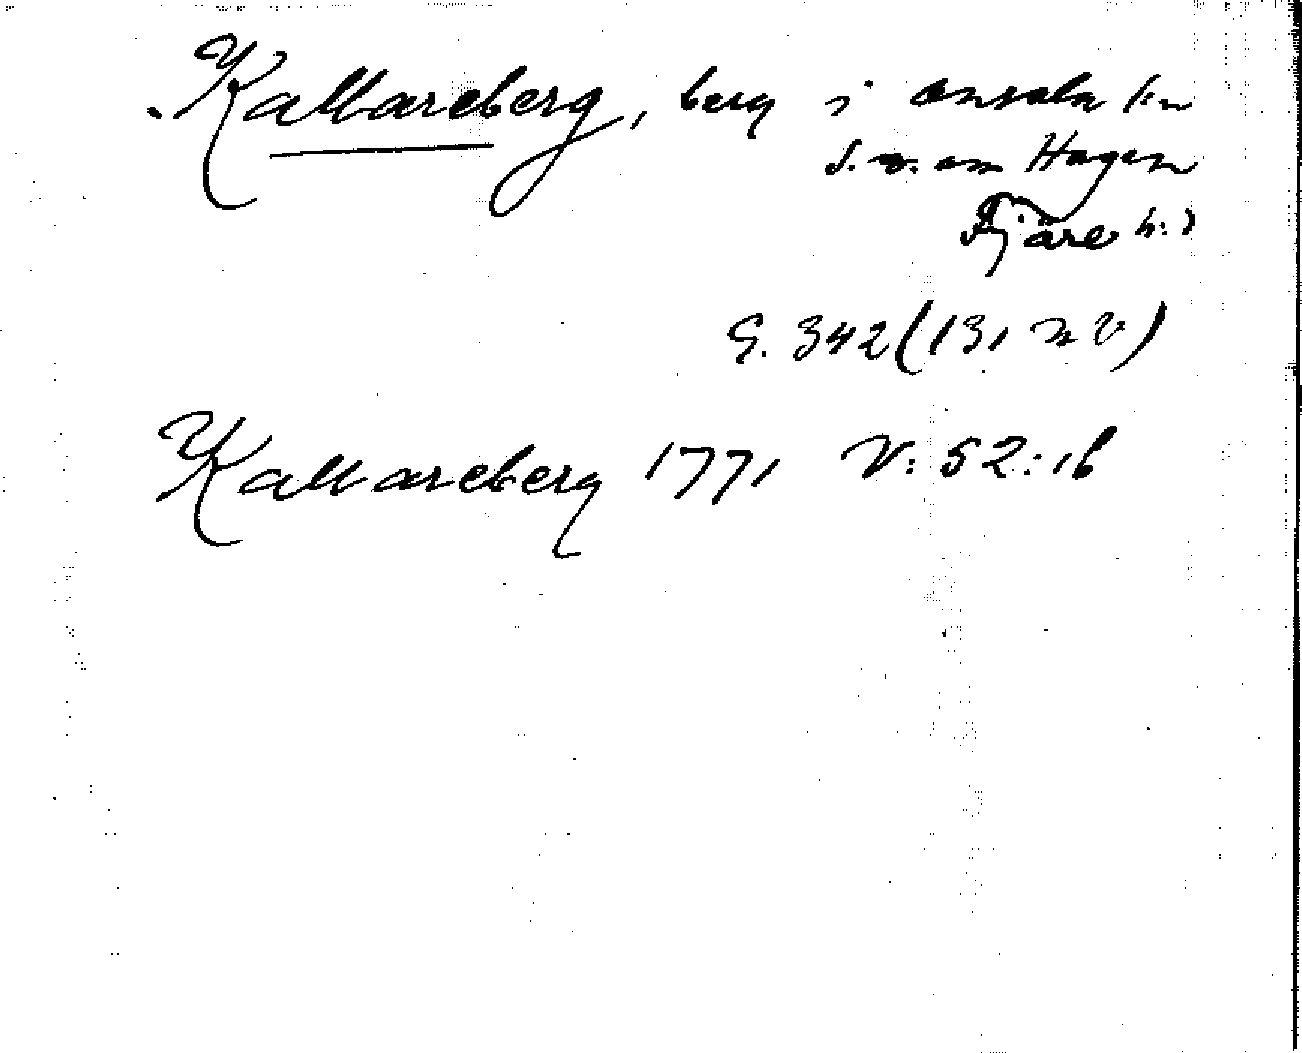 Kallareberg, berg i Onsala sn
S. v. om Hagen
Fjäre h:d
G. 342 (131 n v)
Kallareberg 1771 V: 52: 16